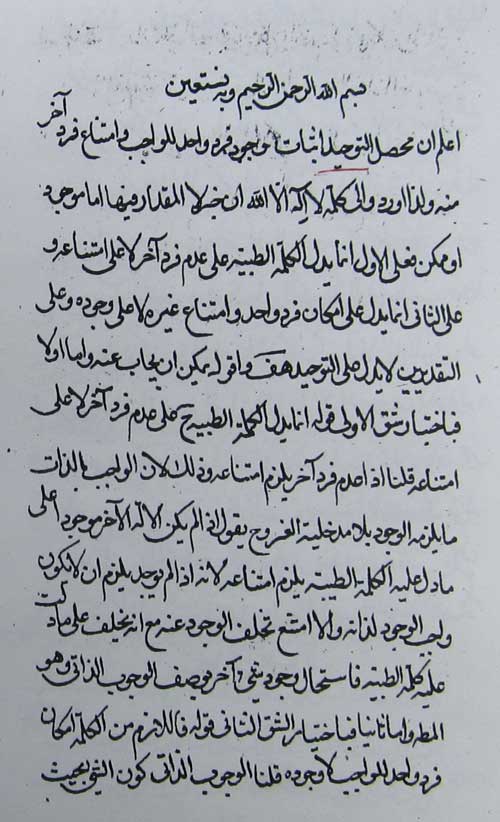 بسم الله الرحمن الرحیم وبه نستعین
اعلم ان محصل التوحید اثبات وجود فرد واحد للواجب وامتناع فرد آخر
منه ولذا اورد والی کلمة لا اله الا الله ان خبر لا المقدار فیها اما موجود
او ممکن فعلی الاول انما یدل الکلمة الطیبة علی عدم فرد آخر لا علی امتناعه و
علی الثانی انما یدل علی امکان فرد واحد وامتناع غیره لا علی وجوده وعلی
التقدیرین لا یدل علی التوحید هف واقول یمکن ان یجاب عنه واما اولا
فباختیار شق الاول قوله انما یدل الکلمة الطیبة ح علی عدم فرد آخر لا علی
امتناعه قلنا اذا عدم فرد آخر یلزم امتناعه وذلک لان الواجب بالذات
ما یلزمه الوجود بلا مدخلیة الغیر وح یقول اذا لم یکن الاله الآخر موجودا علی
ما دل علیه الکلمة الطیبة یلزم امتناعه لانه اذا لم یوجد یلزم ان لا یکون
واجب الوجود لذاته والا امتنع تخلف الوجود عنه مع انه تخلف علی ما دلت
علیه کلمة الطیبة فاستحال وجود شیء آخر بوصف الوجوب الذاتی وهو
المط واما ثانیا فباختیار الشق الثانی قوله فاللازم من الکلمة امکان
فرد واحد للواجب لا وجوده قلنا الوجوب الذاتی کون الشیء بحیث